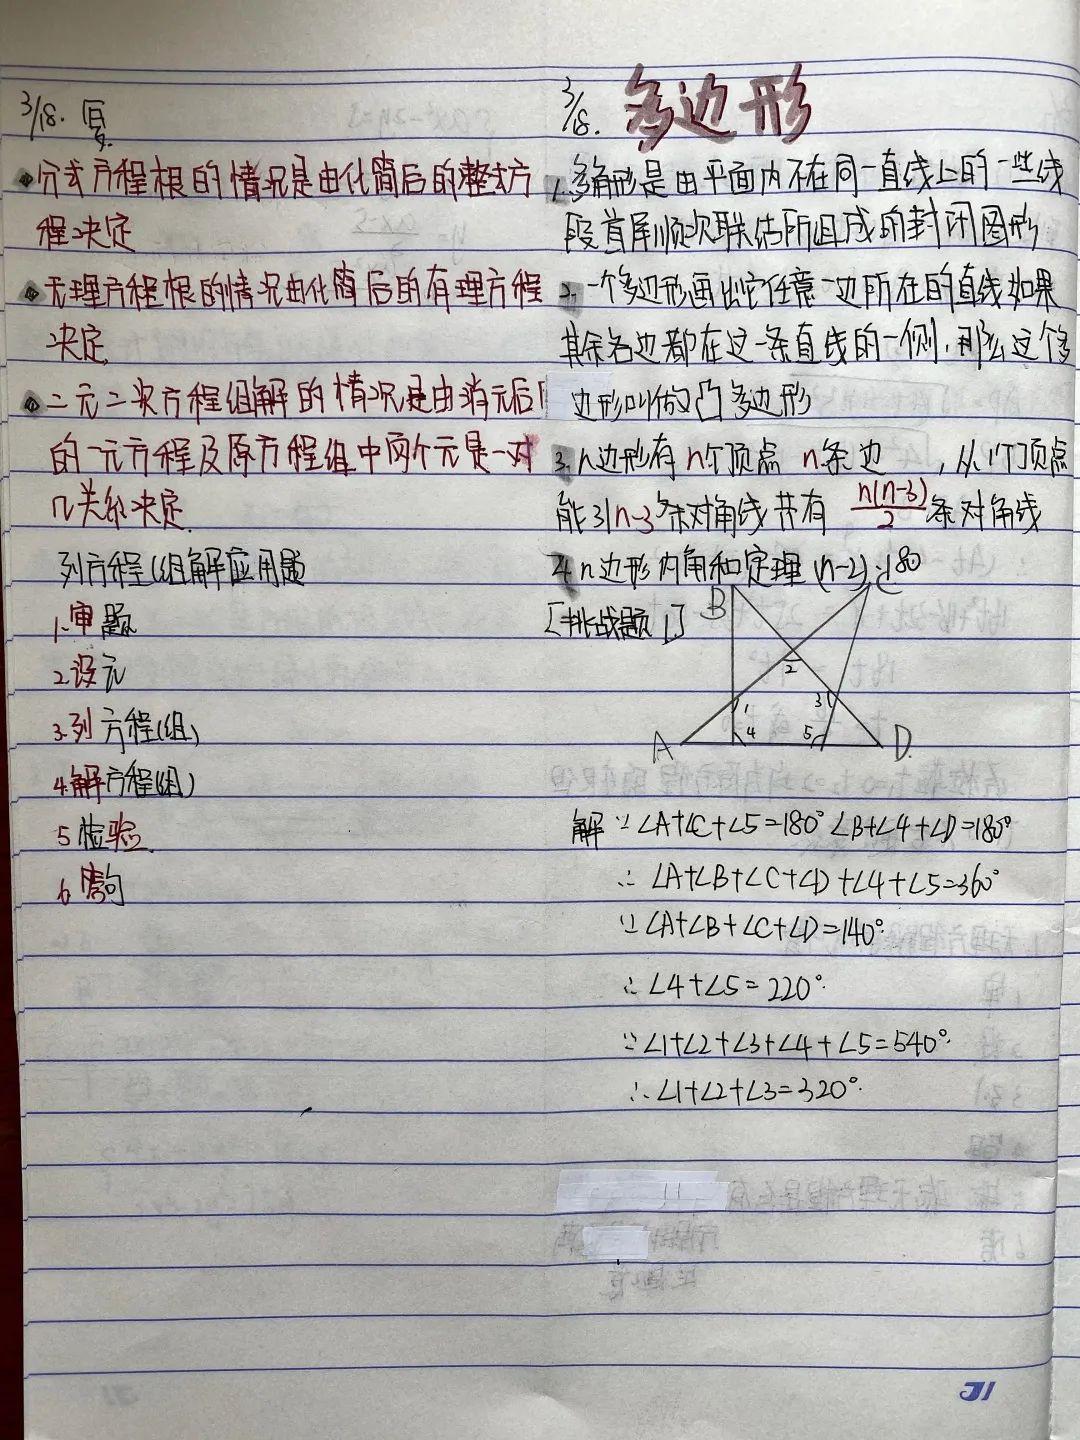 3/18.
分式方程根的情况是由化简后的整式方
程决定
无理方程根的情况由化简后的有理方程
决定.
二元二次方程组解的情况是由消元后
的一元方程及原方程组中两个元是一对
几关系决定.
列方程(组解应用题
1.审题
2设元
3.列方程(组)
4解方程(组)
5检验.
3/18. 多边形
1.多角形是由平面内不在同一直线上的一些线
段首尾顺次联结所组成的封闭图形
2.一个多边形画出它任意一边所在的直线如果
其余各边都在这一条直线的一侧,那么这个多
边形叫做凸多边形
3.n边形有n个顶点 n条边 ,从1个顶点
能引n-3条对角线共有 n(n-3)/2 条对角线
4.n边形内角和定理 (n-2)·180
[挑战题1]
B C
2
1 3
4 5
A D
解∵∠A+∠C+∠5=180° ∠B+∠4+∠D=180°
∴∠A+∠B+∠C+∠D+∠4+∠5=360°
∵∠A+∠B+∠C+∠D=140°
∴∠4+∠5=220°
∵∠1+∠2+∠3+∠4+∠5=540°
∴∠1+∠2+∠3=320°